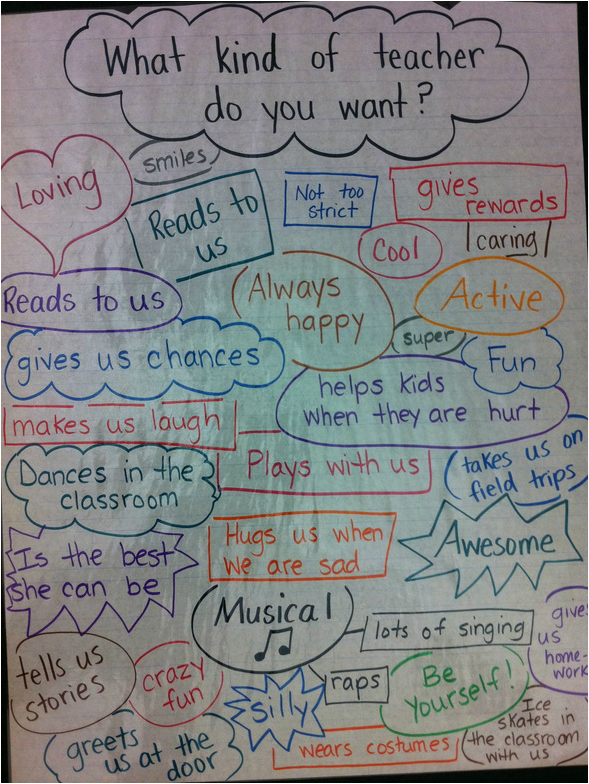 What kind of teacher
do you want?
Loving
smiles
Reads to
us
Not too
strict
gives
rewards
Cool
caring
Reads to us
Always
happy
Active
super
Fun
gives us chances
helps kids
when they are hurt
makes us laugh
Plays with us
takes us on
field trips
Dances in the
classroom
Hugs us when
we are sad
Awesome
Is the best
she can be
Musical
lots of singing
gives
us
home-
work
tells us
stories
crazy
fun
raps
Be
Yourself!
Silly
Ice
skates in
the classroom
with us
greets
us at the
door
wears costumes